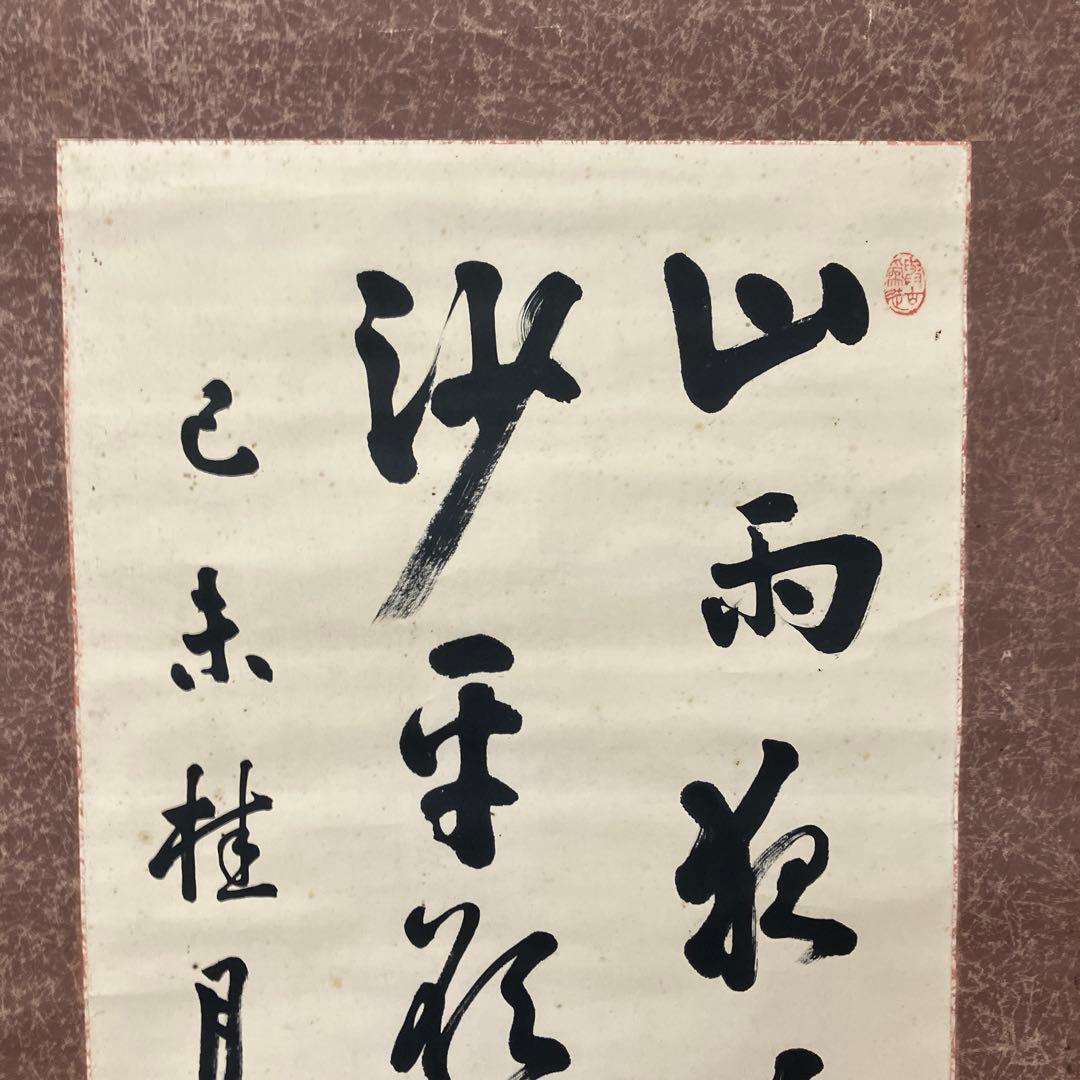 山雨夜
沙平
己未桂月